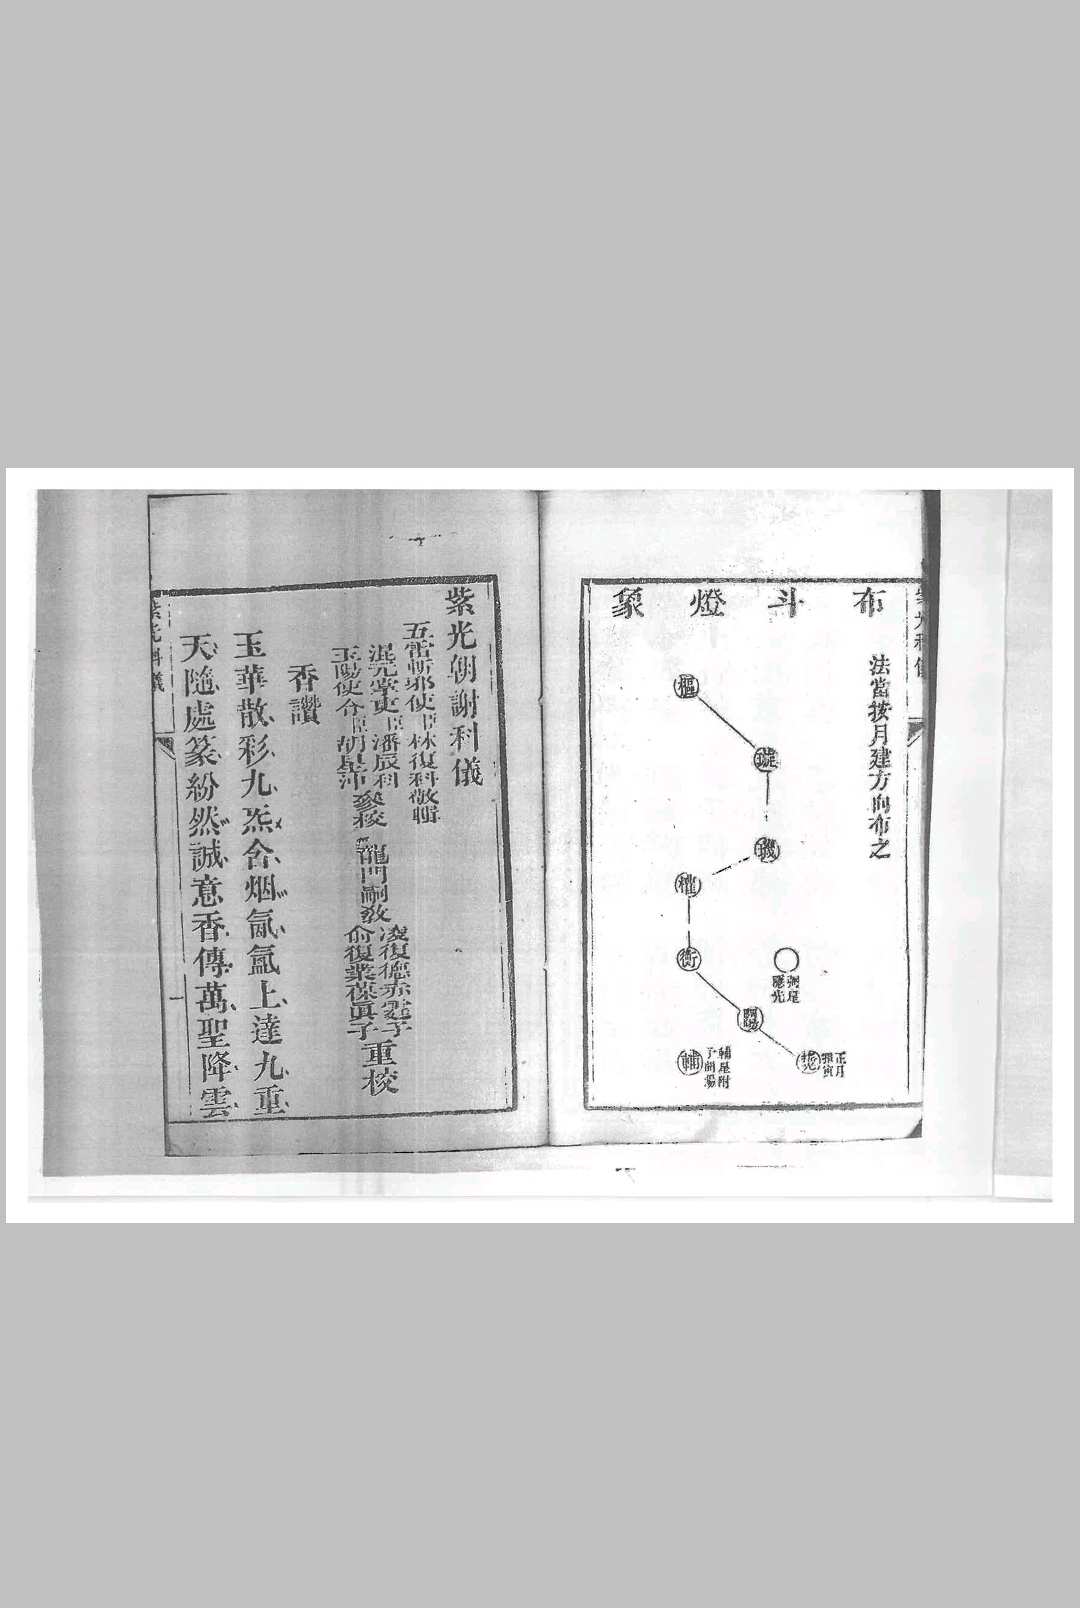 布斗燈象
法當按月建方向布之
樞
璇
璣
權
衡
闓陽
搖光
正月
指寅
弼星
隱光
輔
輔星附
于開陽
紫光科儀
紫光朝謝科儀
五雷斬邪使臣林復科敬輯
混元掌吏臣潘辰科
玉陽使令臣胡昰沛
叅校
龍門嗣教
凌復德赤霆子
俞復業葆眞子
重校
香讚
玉華散彩九炁含烟氤氳上達九重
天隨處篆紛然誠意香傳萬聖降雲
紫光科儀
一